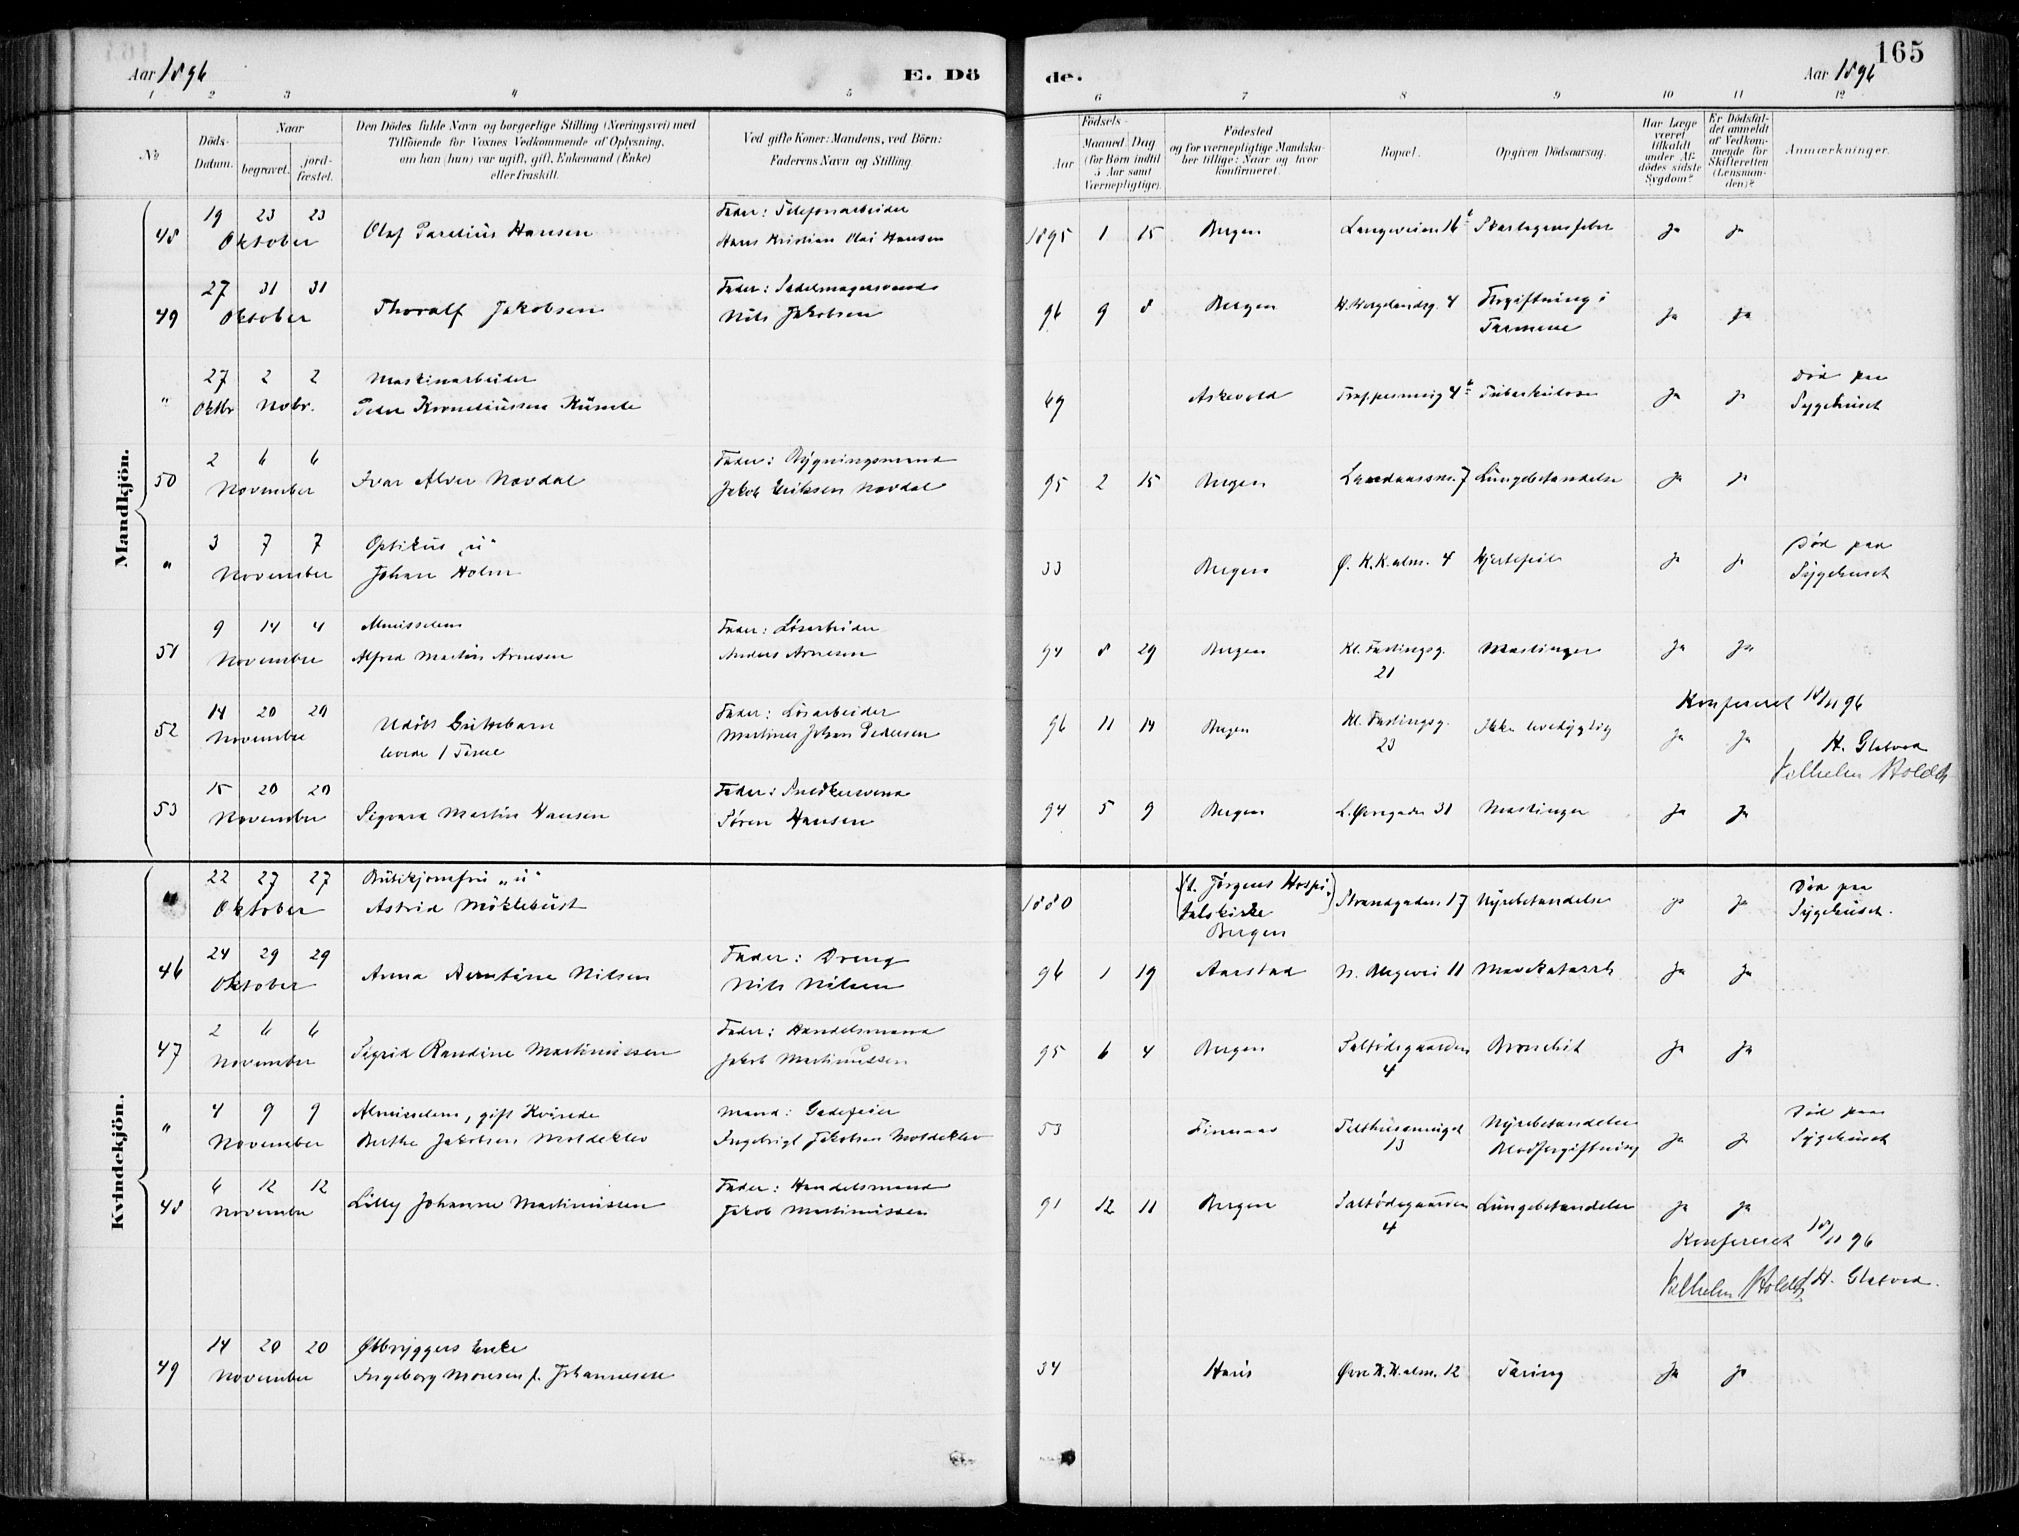 Aar 1896
E. Dö
de.
Aar 1896
165
1 2 3 4 5 6 7 8 9 10 11 12
No
Döds-Datum.
Naar
begravet.
jord-fæstet.
Den Dödes fulde Navn og borgerlige Stilling (Næringsvei) med
Tilföiende for Voxnes Vedkommende af Oplysning,
om han (hun) var ugift, gift, Enkemand (Enke)
eller fraskilt.
Ved gifte Koner: Mandens, ved Börn:
Faderens Navn og Stilling.
Födsels-
Aar
Maaned Dag
(for Börn indtil
5 Aar samt
Værnepligtige).
Födested
og for værnepligtige Mandska-
ber tillige: Naar og hvor
konfirmeret.
Bopæl.
Opgiven Dödsaarsag.
Har Læge
været
tilkaldt
under Af-
dödes sidste
Sygdom?
Er Dödsfal-
det anmeldt
af Vedkom-
mende for
Skifteretten
(Lensman-
den)?
Anmærkninger.
Mandkjön.
48 19 23 23 Oktober Olaf Parelius Hansen Fader: Telefonarbeider
Hans Kristian Olai Hansen 1895 1 15 Bergen Langeveien 16 Skarlagensfeber Ja Ja
49 27 31 31 Oktober Thoralf Jakobsen Fader: Sadelmagersvend
Nils Jakobsen 96 9 8 Bergen H. Wergelandsg. 4 Forgiftning i
Tarmene Ja Ja
" 27 2 2 Oktbr. Novbr. Maskinarbeider
Peder Korneliussen 69 Askevold 4 Tuberkulose Ja Ja Död paa
Sygehuset
50 2 6 6 November Ivar Alver Nævdal Fader: Bygningsmand
Jakob Eriksen Nævdal 95 2 15 Bergen Landaassv. 7 Lungebetændelse Ja Ja
" 3 7 7 November Optikus "u"
Johan Holm 33 Bergen Ø. K.K. alm. 4 Hjertefeil Ja Ja Död paa
Sygehuset
51 9 14 4 November Almisselem
Alfred Martin Arnesen Fader: Løsarbeider
Anders Arnesen 94 8 29 Bergen Kl. Fastingsg.
21 Mæslinger Ja Ja
52 14 20 20 November Udöbt Guttebarn
levede 1 Time Fader: Løsarbeider
Martines Johan Pedersen 96 11 14 Bergen Kl. Fastingsg.
23 Ikke levedygtig Ja Ja
Konfereret 18/11 96
H. Gletved
Vilhelm Holdt
53 15 20 20 November Sigvard Martin Hansen Fader: Snedkersvend
Sören Hansen 94 5 9 Bergen L. Øvregaden 31 Mæslinger Ja Ja
Kvindekjön.
" 22 27 27 Oktober Butikjomfru "u"
Astrid Möklebust 1880 (St. Jørgens Hospi-
talskirke)
Bergen Strandgaden 17 Nyrebetændelse Ja Ja Död paa
Sygehuset.
46 24 29 29 Oktober Anna Berntine Nilsen Fader: Dreng
Nils Nilsen 96 1 19 Aarstad N. Blegevei 11 Mavekatarrh Ja Ja
47 2 6 6 November Sigrid Randine Martinussen Fader: Handelsmand
Jakob Martinussen 95 6 4 Bergen Saltödegaarden
4 Bronchit Ja Ja
" 4 9 9 November Almisselem, gift Kvinde
Berthe Jakobsen Moldeklev Mand: Gadefeier
Ingebrigt Jakobsen Moldeklev 53 Finnaas Telthussmuget
13 Nyrebetændelse
Blodforgiftning Ja Ja Död paa
Sygehuset
48 6 12 12 November Lilly Johanne Martinussen Fader: Handelsmand
Jakob Martinussen 91 12 11 Bergen Saltödegaarden
4 Lungebetændelse Ja Ja
Konfereret 18/11 96
Vilhelm Holdt H. Gletved.
49 14 20 20 November Ølbryggers Enke
Ingeborg Monsen f. Johannesen 34 Haus Øvre K.K. alm. 12 Tæring Ja Ja